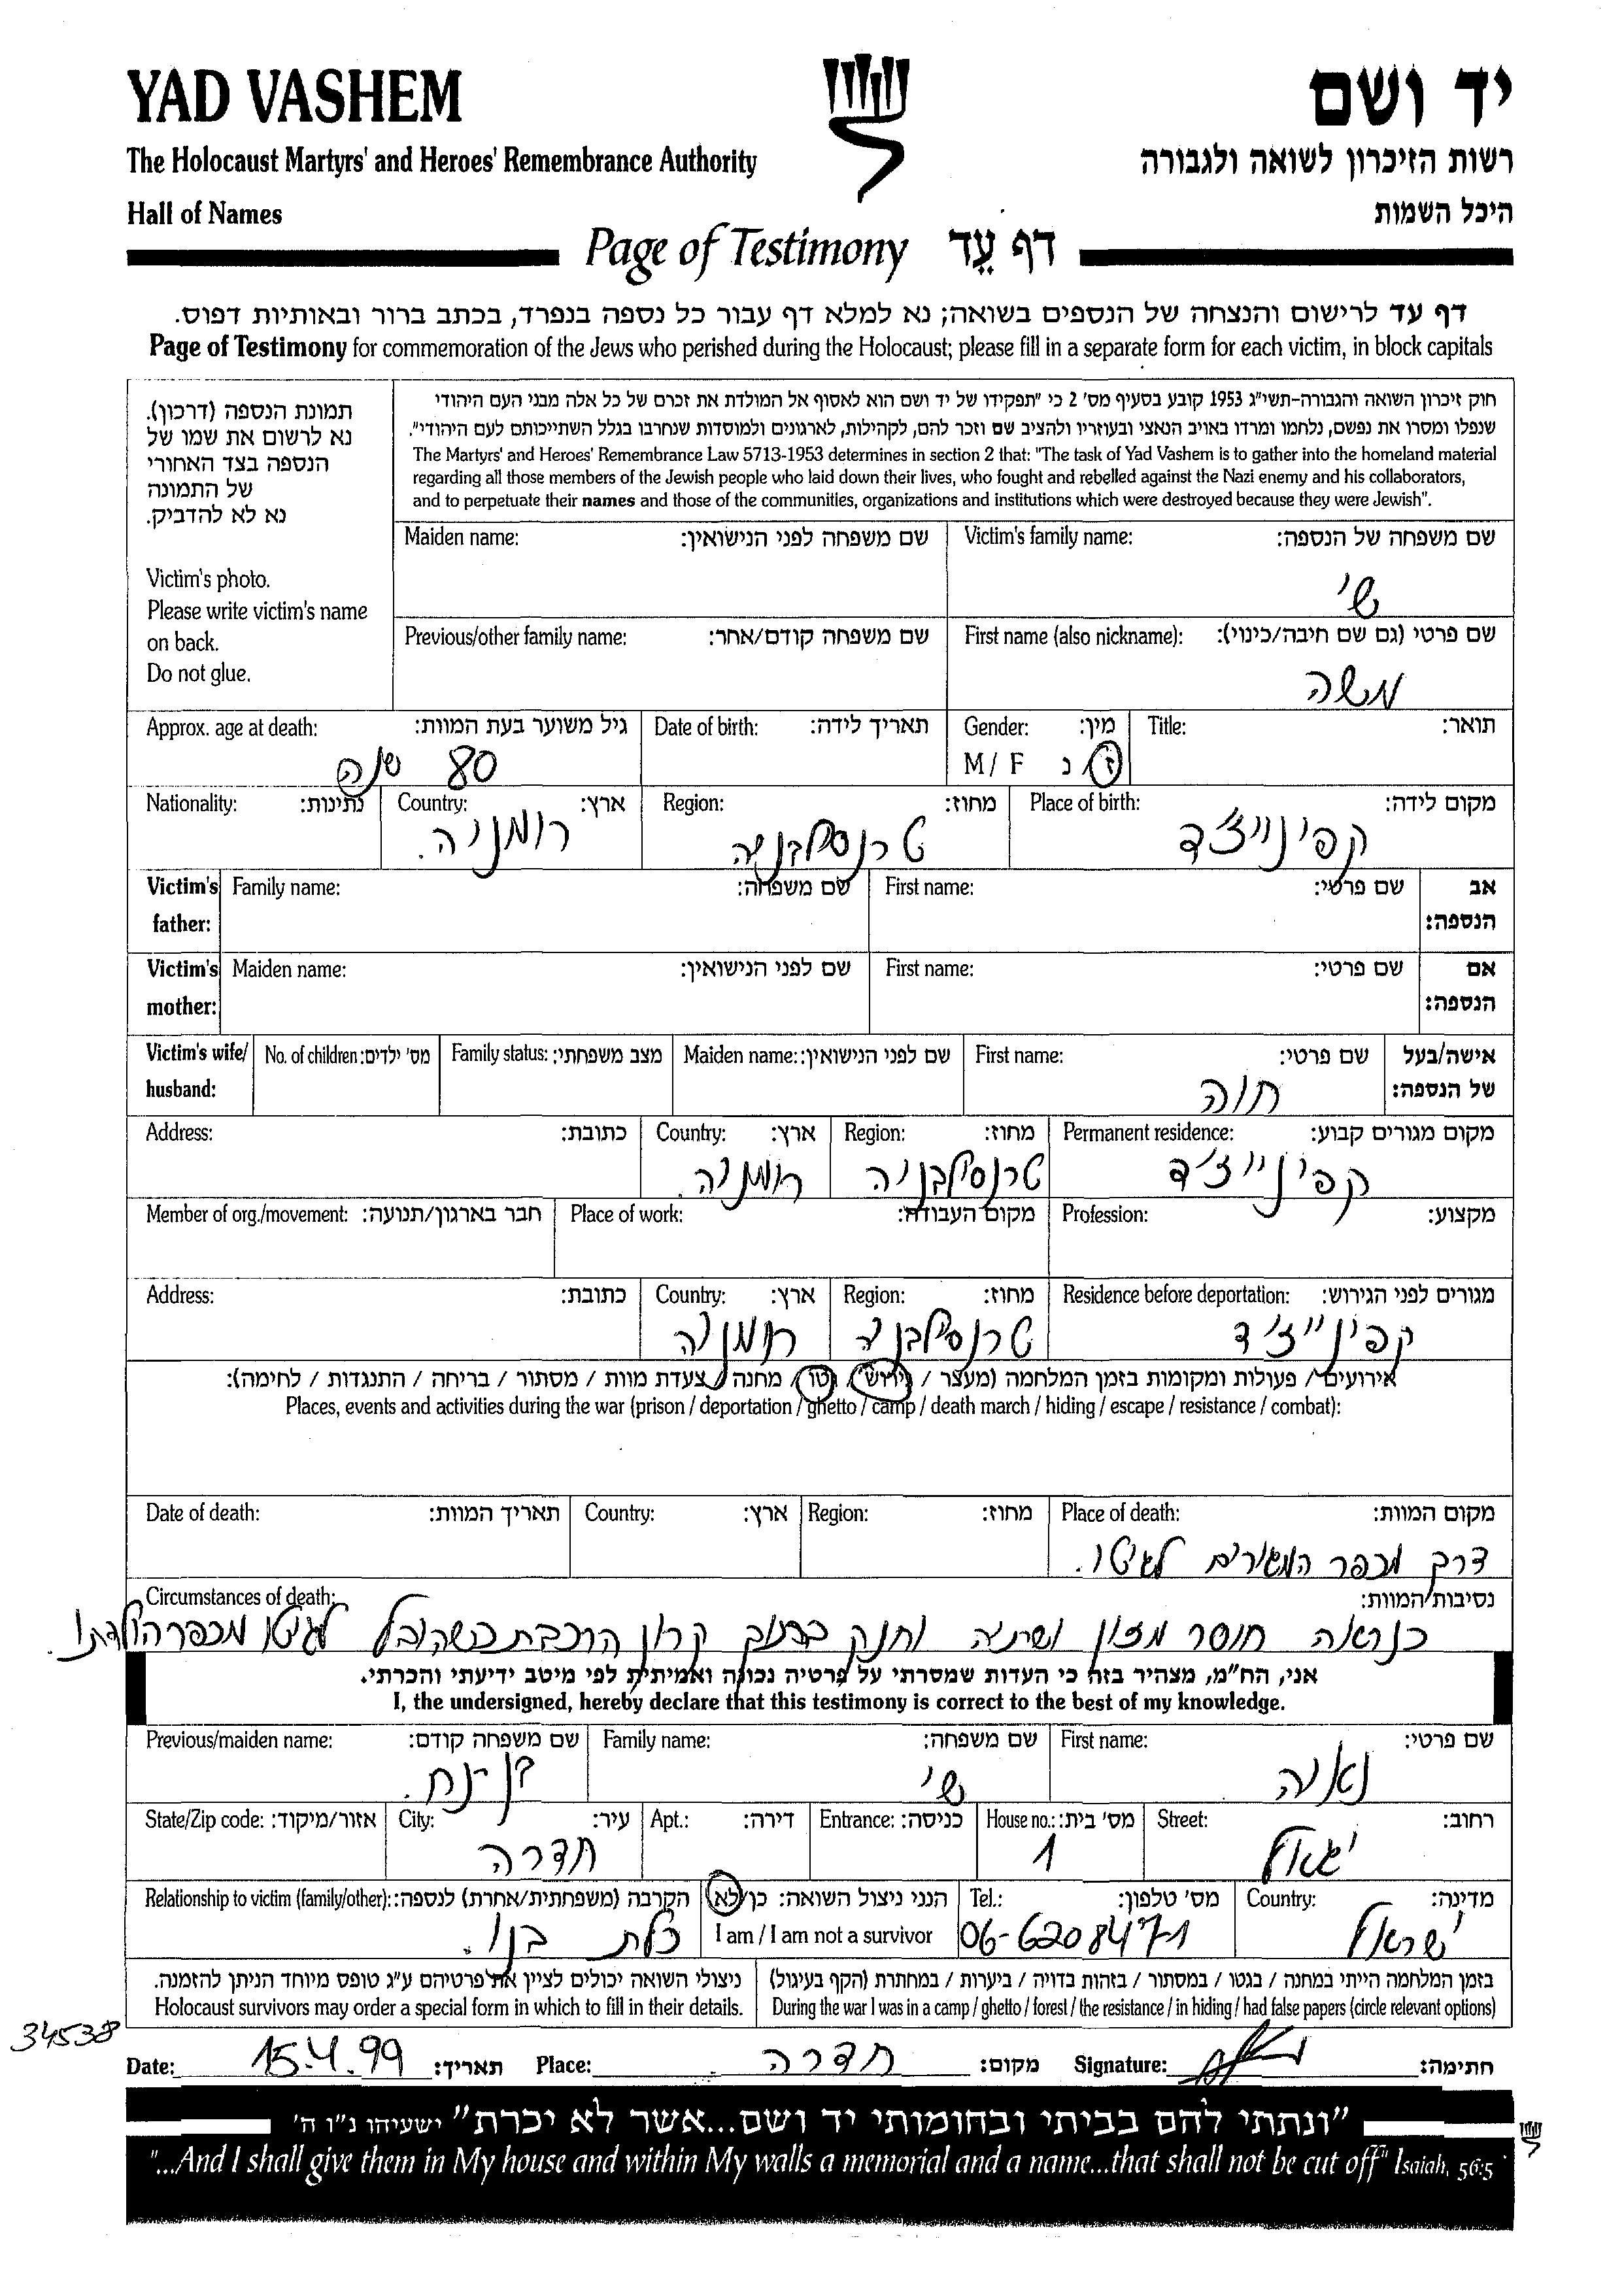 YAD VASHEM
יד ושם
The Holocaust Martyrs' and Heroes' Remembrance Authority
רשות הזיכרון לשואה ולגבורה
Hall of Names
היכל השמות
Page of Testimony דף עֵד
דף עד לרישום והנצחה של הנספים בשואה; נא למלא דף עבור כל נספה בנפרד, בכתב ברור ובאותיות דפוס.
Page of Testimony for commemoration of the Jews who perished during the Holocaust; please fill in a separate form for each victim, in block capitals
תמונת הנספה (דרכון).
נא לרשום את שמו של
הנספה בצד האחורי
של התמונה
נא לא להדביק.
Victim's photo.
Please write victim's name
on back.
Do not glue.
חוק זיכרון השואה והגבורה-תשי"ג 1953 קובע בסעיף מס' 2 כי "תפקידו של יד ושם הוא לאסוף אל המולדת את זכרם של כל אלה מבני העם היהודי
שנפלו ומסרו את נפשם, נלחמו ומרדו באויב הנאצי ובעוזריו ולהציב שם וזכר להם, לקהילות, לארגונים ולמוסדות שנחרבו בגלל השתייכותם לעם היהודי".
The Martyrs' and Heroes' Remembrance Law 5713-1953 determines in section 2 that: "The task of Yad Vashem is to gather into the homeland material
regarding all those members of the Jewish people who laid down their lives, who fought and rebelled against the Nazi enemy and his collaborators,
and to perpetuate their names and those of the communities, organizations and institutions which were destroyed because they were Jewish".
Maiden name: שם משפחה לפני הנישואין: Victim's family name: שם משפחה של הנספה:
שי
Previous/other family name: שם משפחה קודם/אחר: First name (also nickname): שם פרטי (גם שם חיבה/כינוי):
משה
Approx. age at death: גיל משוער בעת המוות: Date of birth: תאריך לידה: Gender: מין: Title: תואר:
80 שנה M / F ז / נ
Nationality: נתינות: Country: ארץ: Region: מחוז: Place of birth: מקום לידה:
רומניה. טרנסילבניה קפינייז'ד
Victim's father: Family name: שם משפחה: First name: שם פרטי: אב הנספה:
Victim's mother: Maiden name: שם לפני הנישואין: First name: שם פרטי: אם הנספה:
Victim's wife/ husband: No. of children: מס' ילדים: Family status: מצב משפחתי: Maiden name: שם לפני הנישואין: First name: שם פרטי: אישה/בעל של הנספה:
חוה
Address: כתובת: Country: ארץ: Region: מחוז: Permanent residence: מקום מגורים קבוע:
רומניה. טרנסילבניה קפינייז'ד
Member of org./movement: חבר בארגון/תנועה: Place of work: מקום העבודה: Profession: מקצוע:
Address: כתובת: Country: ארץ: Region: מחוז: Residence before deportation: מגורים לפני הגירוש:
רומניה טרנסילבניה קפינייז'ד
אירועים / פעולות ומקומות בזמן המלחמה (מעצר / גירוש / גטו / מחנה / צעדת מוות / מסתור / בריחה / התנגדות / לחימה):
Places, events and activities during the war (prison / deportation / ghetto / camp / death march / hiding / escape / resistance / combat):
Date of death: תאריך המוות: Country: ארץ: Region: מחוז: Place of death: מקום המוות:
דרך מכפר המגורים לגיטו.
Circumstances of death: נסיבות המוות:
כנראה חוסר מזון ושתיה וחנק בתוך קרון הרכבת כשהובל לגיטו מכפר הולדתו.
אני, הח"מ, מצהיר בזה כי העדות שמסרתי על פרטיה נכונה ואמיתית לפי מיטב ידיעתי והכרתי.
I, the undersigned, hereby declare that this testimony is correct to the best of my knowledge.
Previous/maiden name: שם משפחה קודם: Family name: שם משפחה: First name: שם פרטי:
שי נאוה
State/Zip code: אזור/מיקוד: City: עיר: Apt.: דירה: Entrance: כניסה: House no.: מס' בית: Street: רחוב:
חדרה 1 יגאל
Relationship to victim (family/other): הקרבה (משפחתית/אחרת) לנספה: הנני ניצול השואה: כן/לא Tel.: מס' טלפון: Country: מדינה:
כלת בנו. I am / I am not a survivor 06-6208471 ישראל
ניצולי השואה יכולים לציין את פרטיהם ע"ג טופס מיוחד הניתן להזמנה.
Holocaust survivors may order a special form in which to fill in their details.
בזמן המלחמה הייתי במחנה / בגטו / במסתור / בזהות בדויה / ביערות / במחתרת (הקף בעיגול)
During the war I was in a camp / ghetto / forest / the resistance / in hiding / had false papers (circle relevant options)
34538
Date: 15.4.99 תאריך: Place: חדרה מקום: Signature: חתימה:
"ונתתי להם בביתי ובחומותי יד ושם...אשר לא יכרת" ישעיהו נ"ו ה'
"...And I shall give them in My house and within My walls a memorial and a name...that shall not be cut off" Isaiah, 56:5